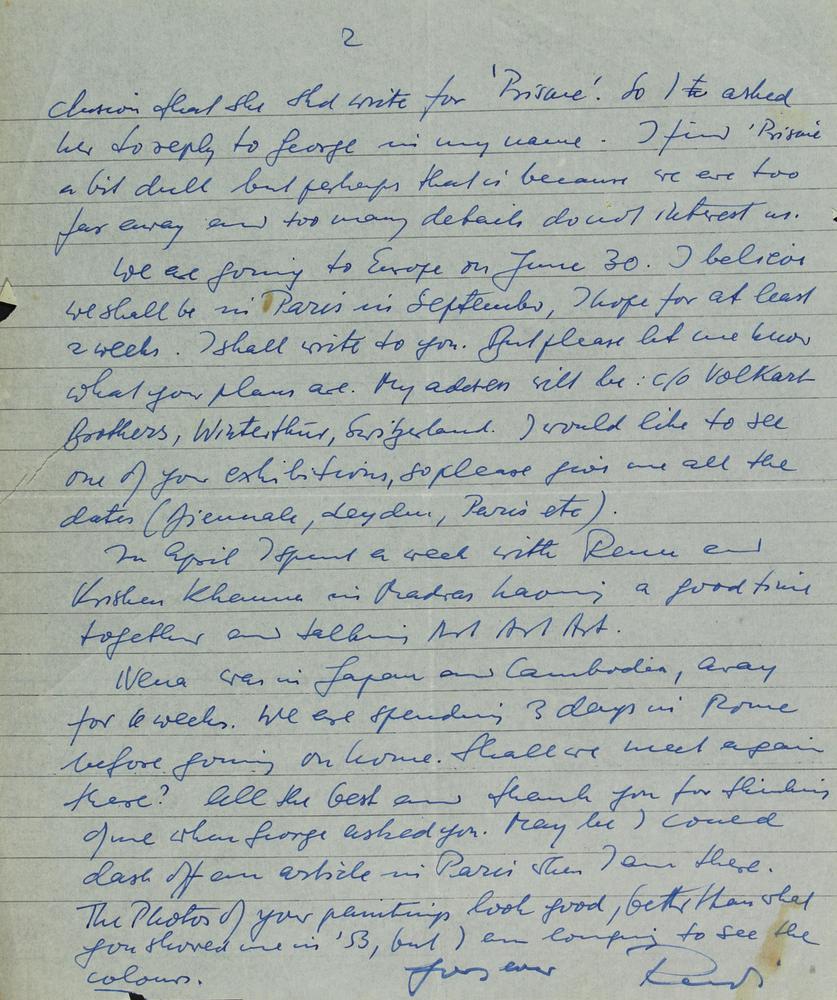 2
clusion that she shd write for 'Prisme'. So I asked
her to reply to George in my name. I find 'Prisme
a bit dull but perhaps that is because we are too
far away and too many details do not interest us.
We are going to Europe on June 30. I believe
we shall be in Paris in September, I hope for at least
2 weeks. I shall write to you. But please let me know
what your plans are. My address will be: c/o Volkart
Brothers, Winterthur, Switzerland. I would like to see
one of your exhibitions, so please give me all the
dates (Biennale, Leyden, Paris etc).
In April I spent a week with Renu and
Krishen Khanna in Madras having a good time
together and talking Art Art Art.
Nena was in Japan and Cambodia, away
for 6 weeks. We are spending 3 days in Rome
before going on home. Shall we meet again
there? All the best and thank you for thinking
of me when George asked you. May be I could
dash off an article in Paris when I am there.
The Photos of your paintings look good, better than what
you showed me in '53, but I am longing to see the
colours.
Yours ever Rudi